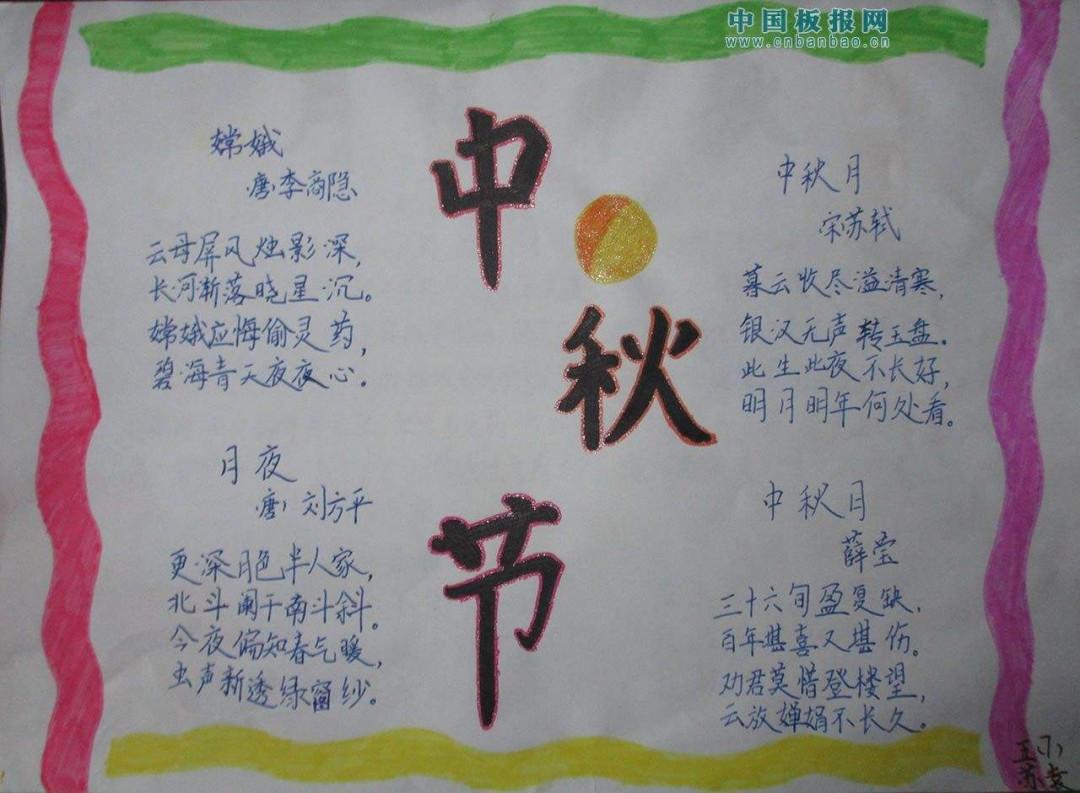 中国板报网
www.cnbanbao.cn
中
秋
节
嫦娥
唐李商隐
云母屏风烛影深，
长河渐落晓星沉。
嫦娥应悔偷灵药，
碧海青天夜夜心。
月夜
唐 刘方平
更深月色半人家，
北斗阑干南斗斜。
今夜偏知春气暖，
虫声新透绿窗纱。
中秋月
宋苏轼
暮云收尽溢清寒，
银汉无声转玉盘。
此生此夜不长好，
明月明年何处看。
中秋月
薛莹
三十六旬盈复缺，
百年堪喜又堪伤。
劝君莫惜登楼望，
云放婵娟不长久。